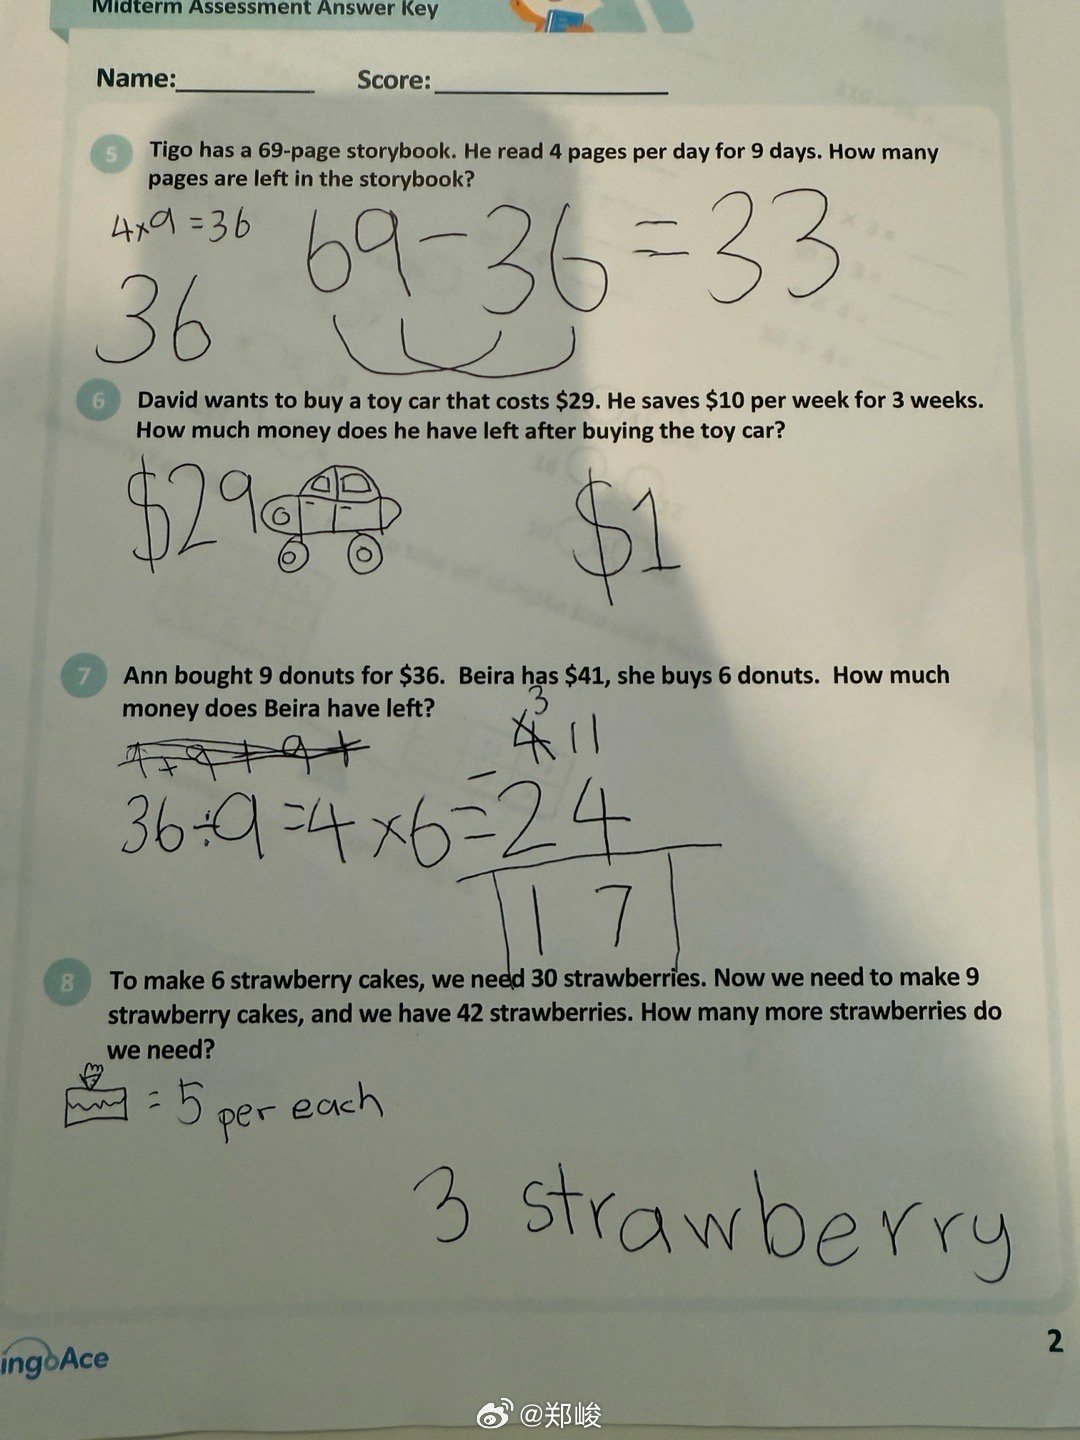 Midterm Assessment Answer Key
Name:____________ Score:____________________
5 Tigo has a 69-page storybook. He read 4 pages per day for 9 days. How many
pages are left in the storybook?
4×9=36
69-36=33
36
6 David wants to buy a toy car that costs $29. He saves $10 per week for 3 weeks.
How much money does he have left after buying the toy car?
$29 $1
7 Ann bought 9 donuts for $36. Beira has $41, she buys 6 donuts. How much
money does Beira have left?
3
4 11
36÷9=4×6=24
-
17
8 To make 6 strawberry cakes, we need 30 strawberries. Now we need to make 9
strawberry cakes, and we have 42 strawberries. How many more strawberries do
we need?
= 5 per each
3 strawberry
ingoAce
2
@郑峻